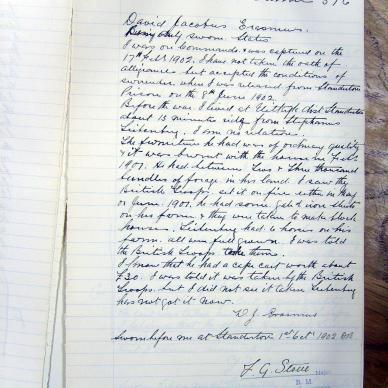 576
David Jacobus Erasmus.
Being duly sworn States
I was on Commando & was captured on the
17th Feb 1902. I have not taken the oath of
allegiance but accepted the conditions of
surrender when I was released from Standerton
Prison on the 8th June 1902.
Before the war I lived at Dist Standerton
about 15 minutes ride from Stephanus
I am no relation.
The furniture he had was of ordinary quality
& it was burnt with the house in Feb
1901. He had between two & three thousand
bundles of forage on his land. I saw the
British Troops set it on fire either in May
or June 1901. he had some gal iron sheets
on his farm & they were taken to make block
houses. had 6 horses on his
farm. all were full grown. I was told
the British Troops took them.
I know that he had a cape cart worth about
£30. I was told it was taken by the British
Troops. but I did not see it taken
has not got it now.
D J Erasmus
Sworn before me at Standerton 1st Oct 1902
F. G. Major
R M